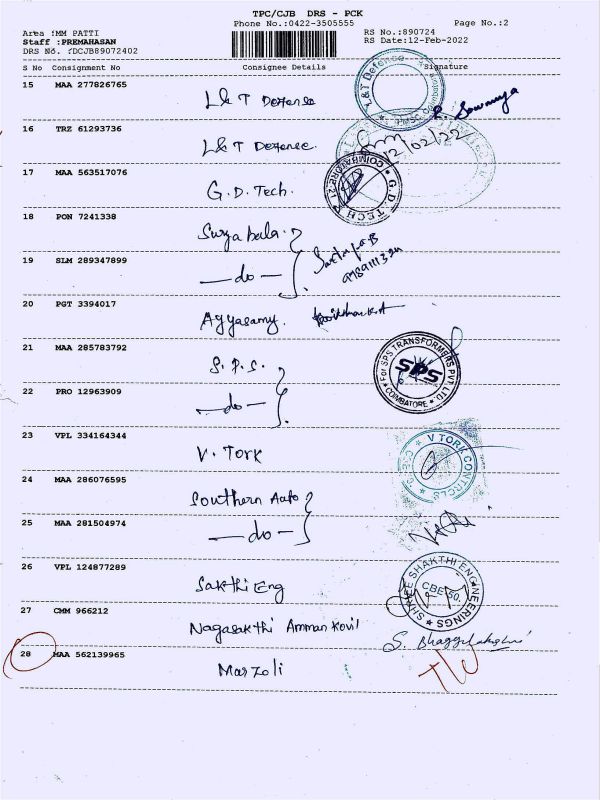 TPC/CJB DRS - PCK
Phone No.:0422-3505555 Page No.:2
Area :MM PATTI RS No.:890724
Staff :PREMAHASAN RS Date:12-Feb-2022
DRS No. :DCJB89072402
S No Consignment No Consignee Details Signature
15 MAA 277826765 L&T Defense L&T Defence
R. Sowmya
16 TRZ 61293736 L&T Defense.
12/02/22
17 MAA 563517076 G.D. Tech. G.D. TECH COIMBATORE-21
18 PON 7241338 Suryabala.
19 SLM 289347899 —do—
20 PGT 3394017 Ayyasamy.
21 MAA 285783792 S.P.S. For SPS TRANSFORMERS PVT LTD. SPS COIMBATORE
22 PRO 12963909 —do—
23 VPL 334164344 V. Tork V TORK CONTROLS
24 MAA 286076595 Southern Auto
25 MAA 281504974 —do—
26 VPL 124877289 Sakthi Eng SHREE SHAKTHI ENGINEERINGS CBE-50.
27 CMM 966212 Nagasakthi Amman Kovil
28 MAA 562139965 Marzoli